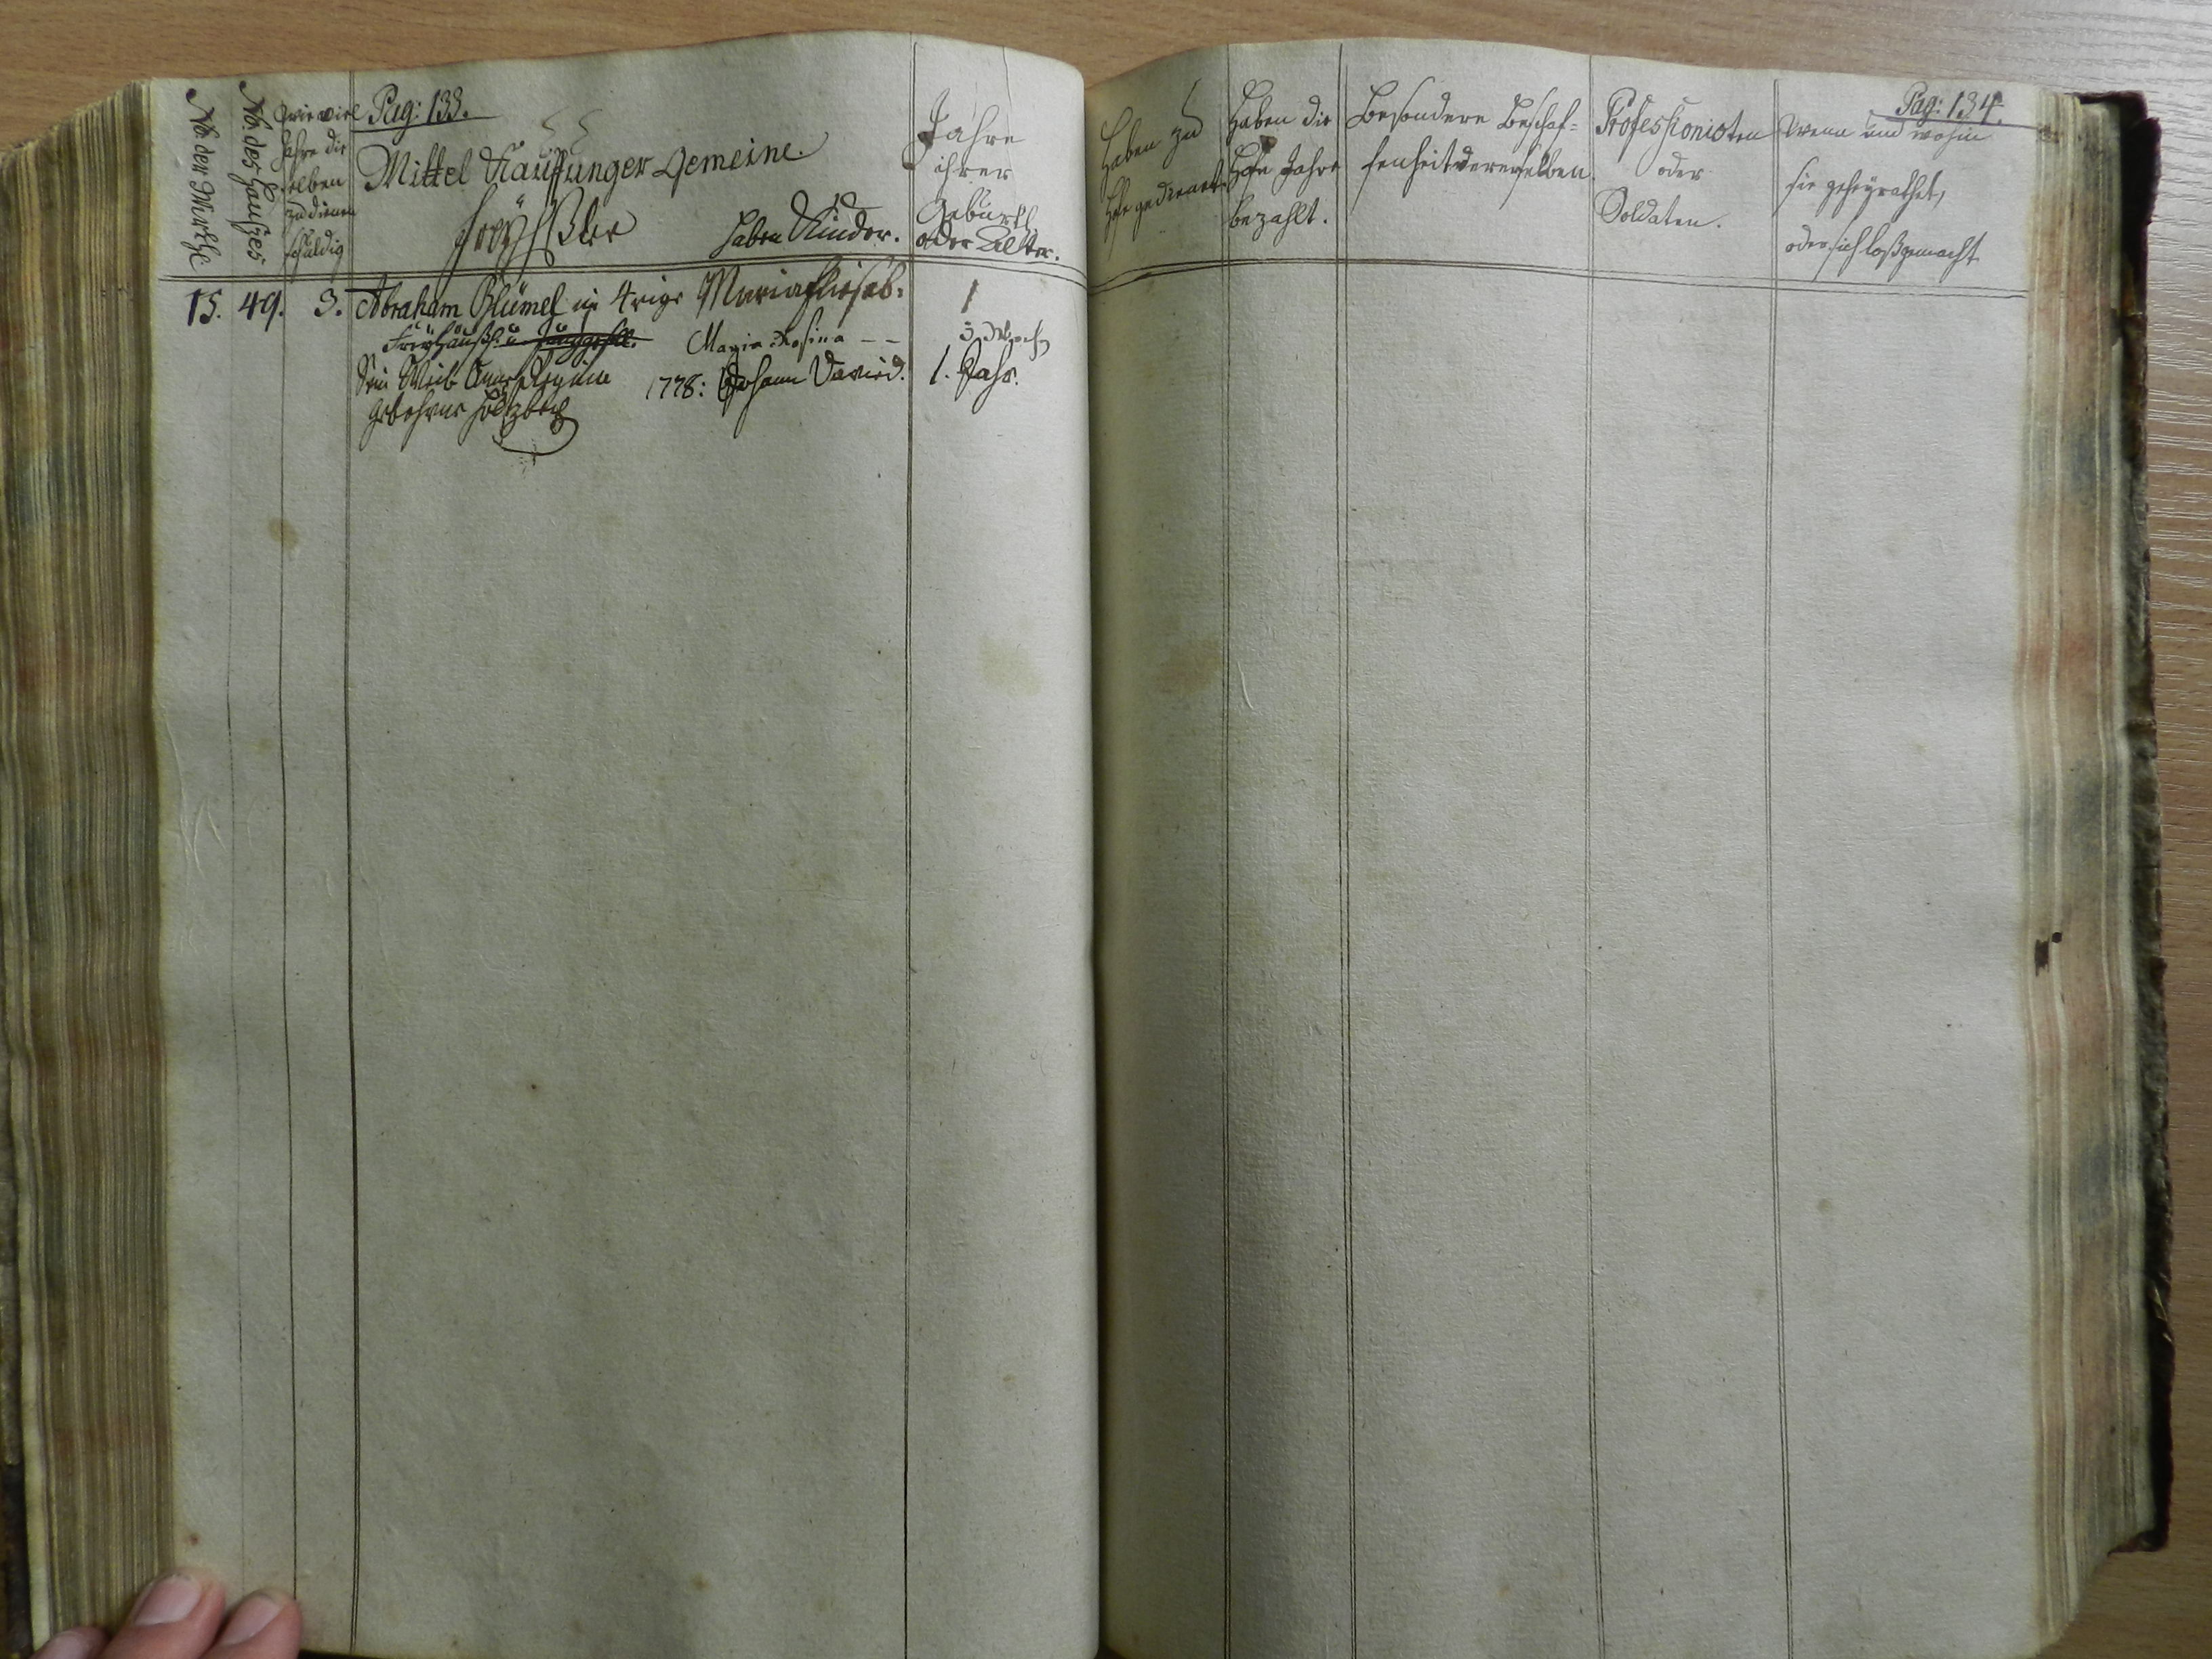 No. der Wirthe
No. des Hauses
Wie viel
Jahre die
selben
zu dienen
schuldig
Pag: 133.
Mittel Kauffunger Gemeine.
haben Kinder.
Jahre
ihrer
Geburth
oder Alter.
15. 49. 3. Abraham Blümel in 4rige Maria Elisab: 1
Freyhäußl: u. Maria Rosina – – 3. Woch
Sein Weib Anna Regina 1778: Johann David. 1. Jahr.
gebohrne
Pag: 134.
Haben zu
Hofe gedienet
Haben die
Hofe Jahre
bezahlt.
Besondere Beschaf=
fenheit derenselben.
Professionisten
oder
Soldaten.
Wenn und wohin
sie geheyrathet,
oder sich loßgemacht